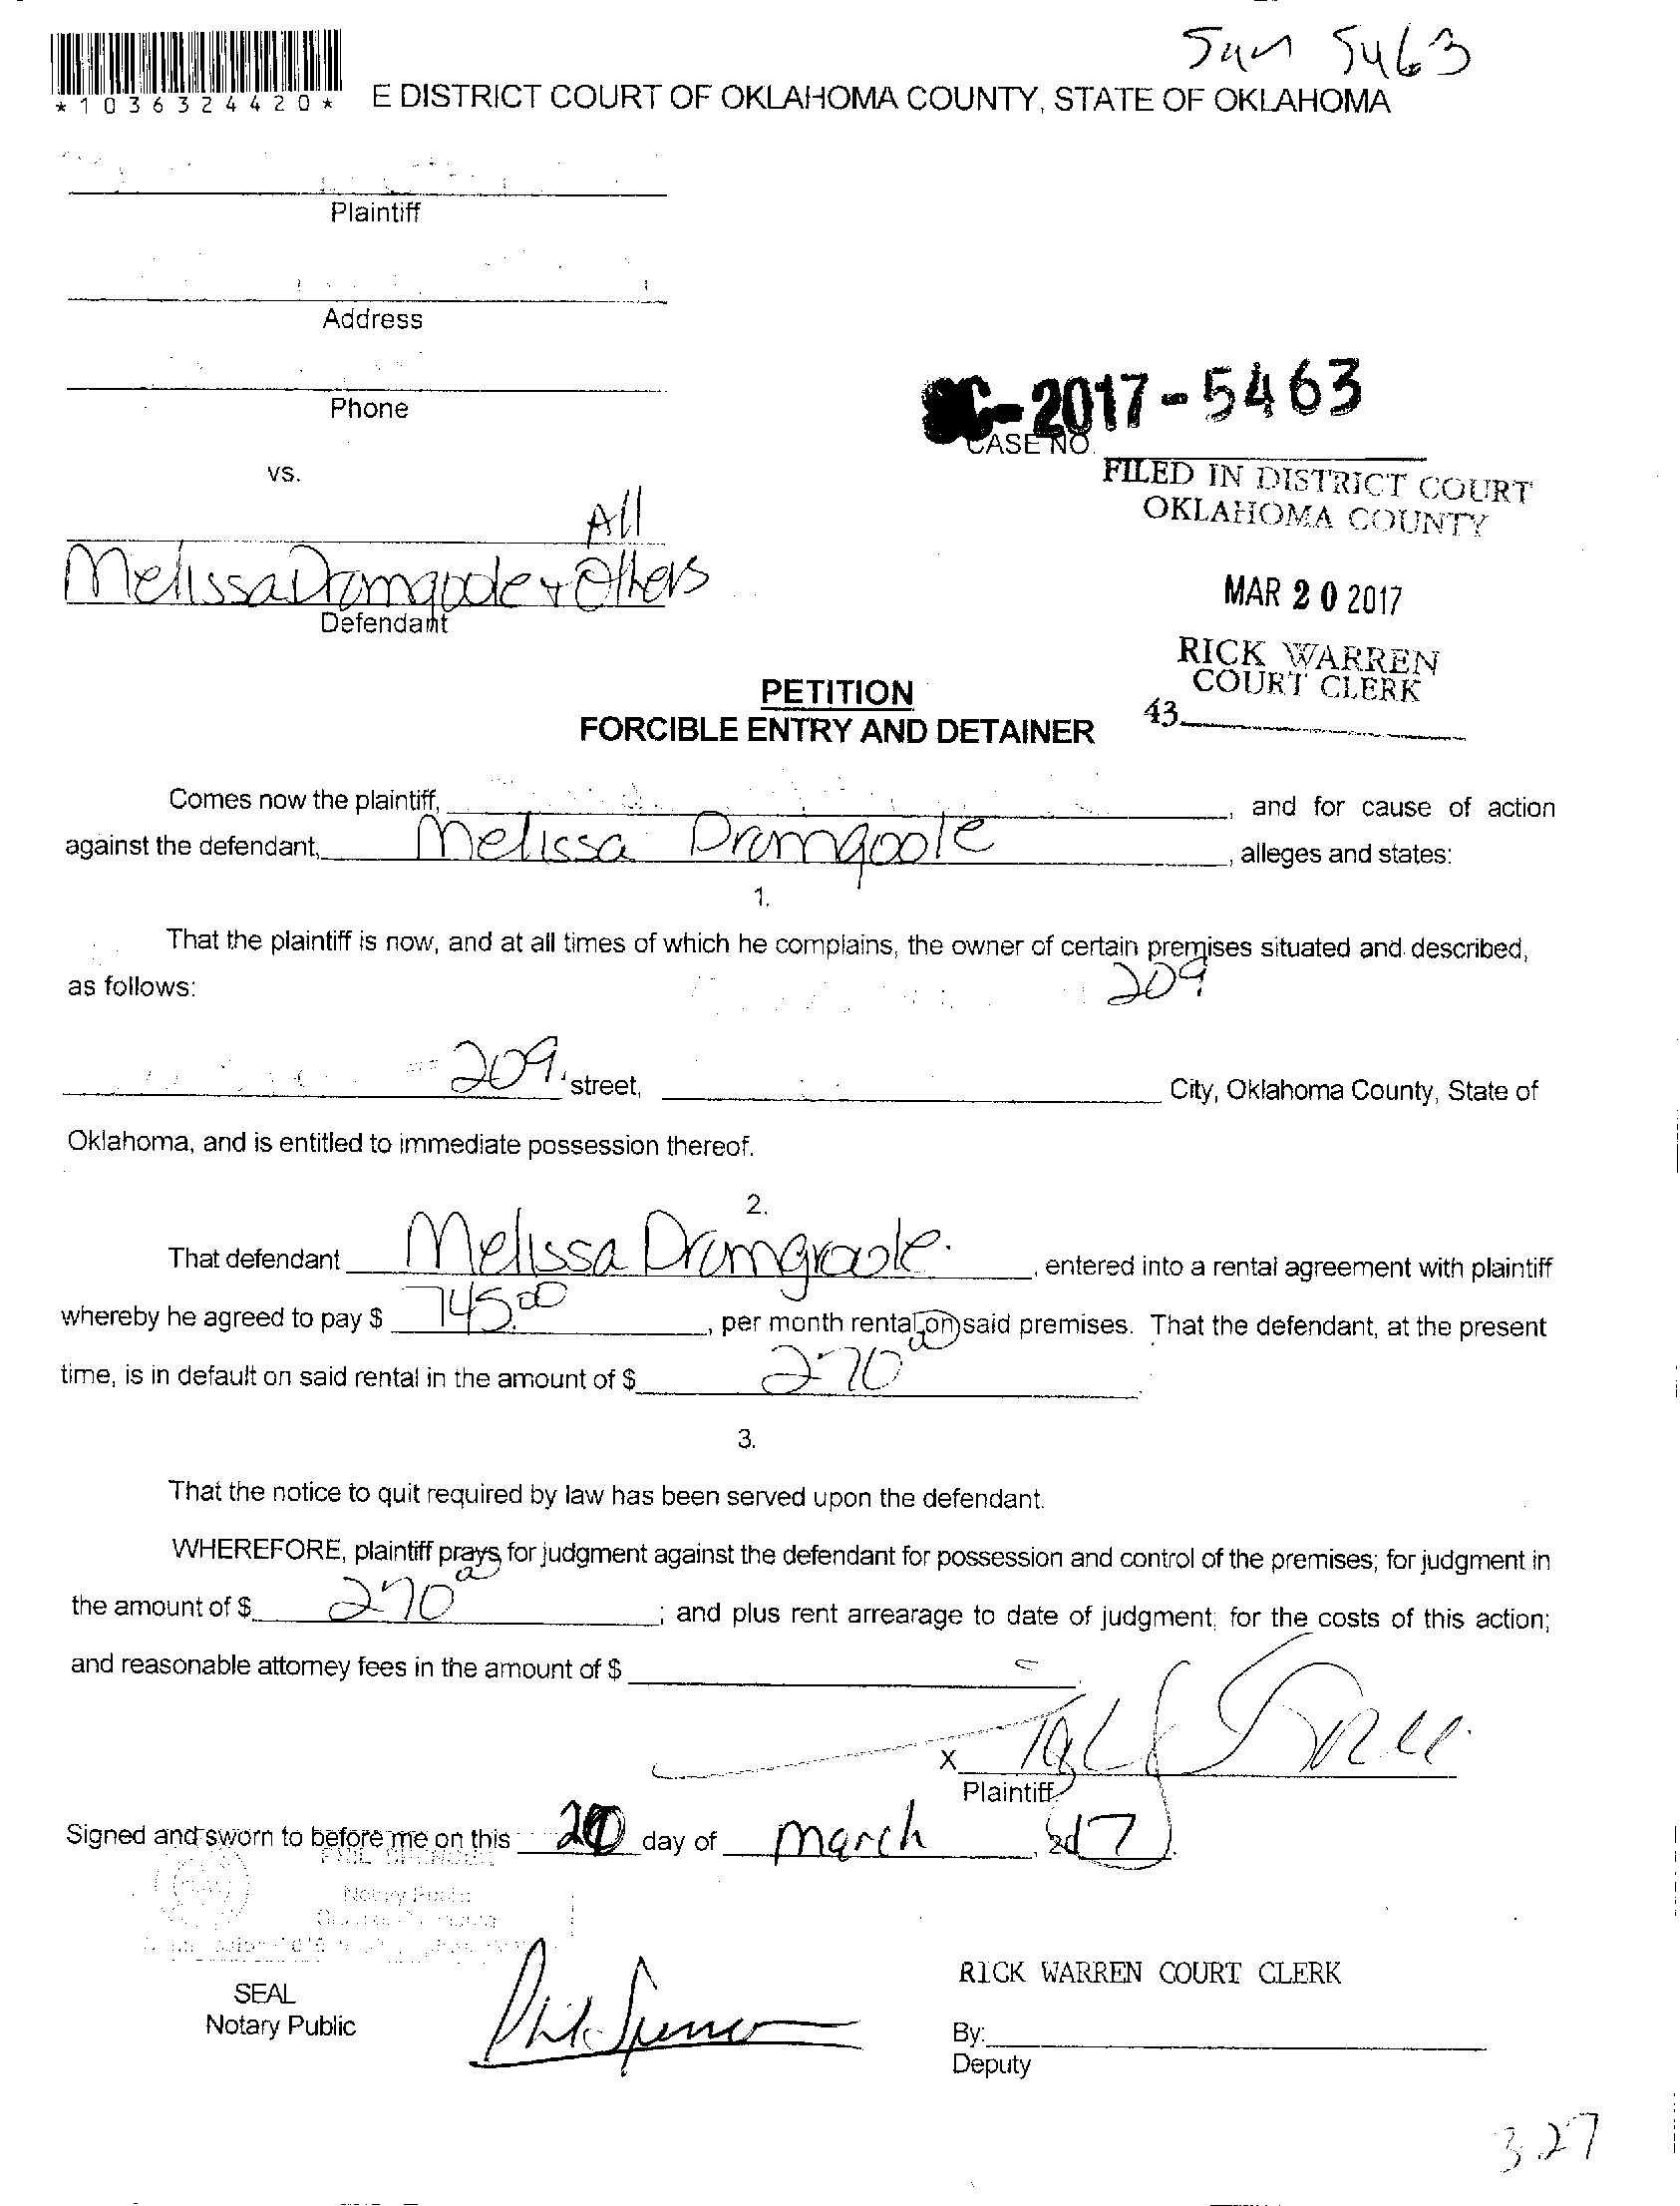 5463
*1036324420*
E DISTRICT COURT OF OKLAHOMA COUNTY, STATE OF OKLAHOMA
Plaintiff
Address
Phone
SC-2017-5463
CASE NO.
vs.
FILED IN DISTRICT COURT
OKLAHOMA COUNTY
All
Melissa Dromgoole + Others
Defendant
MAR 20 2017
RICK WARREN
COURT CLERK
43
PETITION
FORCIBLE ENTRY AND DETAINER
Comes now the plaintiff, , and for cause of action
against the defendant, Melissa Dromgoole , alleges and states:
1.
That the plaintiff is now, and at all times of which he complains, the owner of certain premises situated and described,
as follows: 209
209 street, City, Oklahoma County, State of
Oklahoma, and is entitled to immediate possession thereof.
2.
That defendant Melissa , entered into a rental agreement with plaintiff
whereby he agreed to pay $ 745.00 , per month rental on said premises. That the defendant, at the present
time, is in default on said rental in the amount of $ 270 00
3.
That the notice to quit required by law has been served upon the defendant.
WHEREFORE, plaintiff prays for judgment against the defendant for possession and control of the premises; for judgment in
the amount of $ 270 00 ; and plus rent arrearage to date of judgment; for the costs of this action;
and reasonable attorney fees in the amount of $
X
Plaintiff
Signed and sworn to before me on this 20 day of March , 2017.
PHIL SPENCER
Notary Public
SEAL
Notary Public
Phil Spencer
RICK WARREN COURT CLERK
By:
Deputy
327